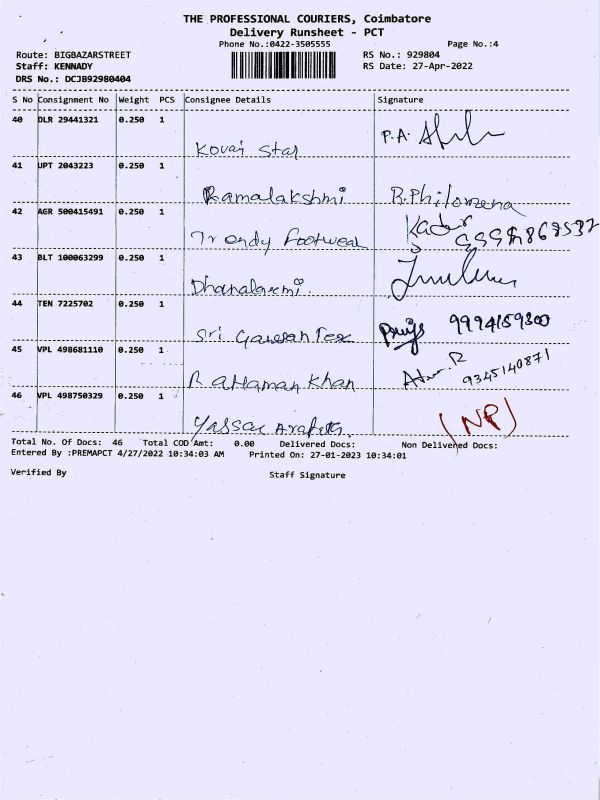 THE PROFESSIONAL COURIERS, Coimbatore
Delivery Runsheet - PCT
Phone No.:0422-3505555 Page No.:4
Route: BIGBAZARSTREET RS No.: 929804
Staff: KENNADY RS Date: 27-Apr-2022
DRS No.: DCJB92980404
S No Consignment No Weight PCS Consignee Details Signature
40 DLR 29441321 0.250 1
Kovai Star P.A.
41 UPT 2043223 0.250 1
Ramalakshmi R.Philomena
42 AGR 500415491 0.250 1
Trendy Footwear Kader
43 BLT 100063299 0.250 1
Dhanalaxmi.
44 TEN 7225702 0.250 1
Sri Ganesan Tex 9994159300
45 VPL 498681110 0.250 1
Rahaman Khan 9345140871
46 VPL 498750329 0.250 1
Yassar Arafath (NP)
Total No. Of Docs: 46 Total COD Amt: 0.00 Delivered Docs: Non Delivered Docs:
Entered By :PREMAPCT 4/27/2022 10:34:03 AM Printed On: 27-01-2023 10:34:01
Verified By Staff Signature